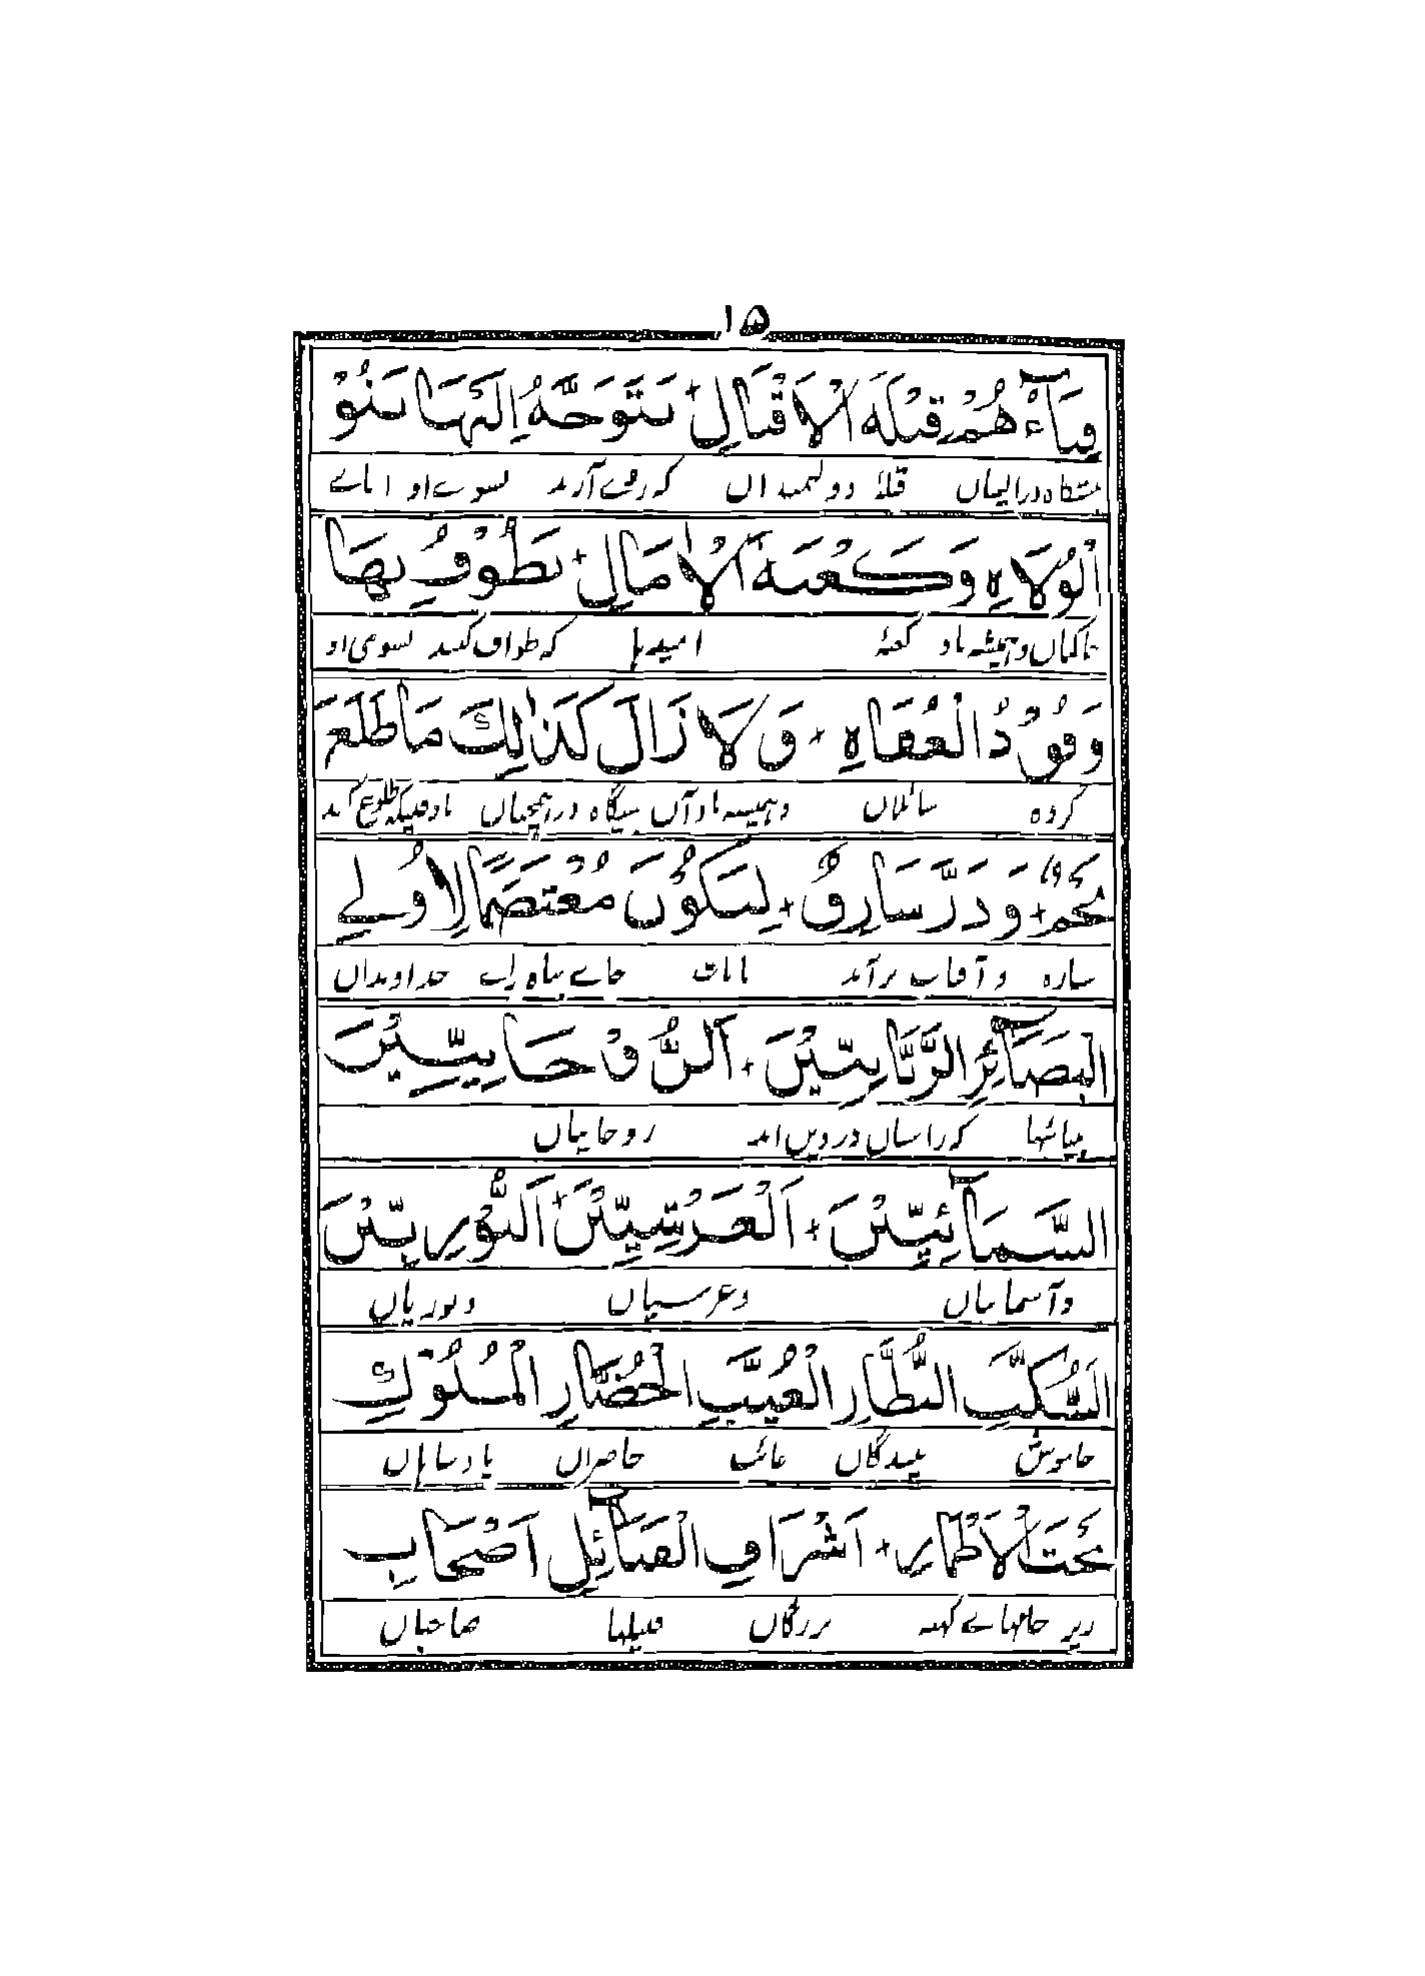 ۱۵
فِنَآءُ هُمْ قِبْلَةَ الْاَقْبَالِ + تَتَوَجَّهُ اِلَيْهَا بَنُوْ
درایشاں قبلۂ دولتمنداں کہ روے آرند بسوے او ابناے
الْوُلَاهِ وَكَعْبَةَ الْاٰمَالِ + تَطُوْفُ بِهَا
حاکماں وہمیشہ باد کعبۂ امیدہا کہ طواف کنند بسوی او
وُفُوْدُ الْعُفَاهِ + وَلَا زَالَ كَذٰلِكَ مَا طَلَعَ
کردہ سائلاں وہمیشہ باد آں درہمچناں تا وقتیکہ طلوع کند
نَجْمٌ + وَذَرَّ شَارِقٌ + لِيَكُوْنَ مُعْتَصَمًا لِاُولِے
ستارہ و آفتاب برآمد تا باشد جاے پناہ براے خداونداں
الْبَصَآئِرِ الرَّبَّانِيِّيْنَ + اَلرُّوْحَانِيِّيْنَ
بینائیہا کہ دردیں اند روحانیاں
السَّمَآئِيِّيْنَ + اَلْعَرْشِيِّيْنَ + اَلنُّوْرِيِّيْنَ
و آسمانیاں وعرشیاں ونوریاں
السُّكَّتِ النُّظَّارِ الْغُيَّبِ الْحُضَّارِ الْمُلُوْكِ
خاموش بینندگاں غائب حاضراں بادشاہاں
تَحْتَ الْاَطْمَارِ + اَشْرَافِ الْقَبَآئِلِ اَصْحَابِ
زیر جامہاے کہنہ بزرگاں قبیلہا صاحباں